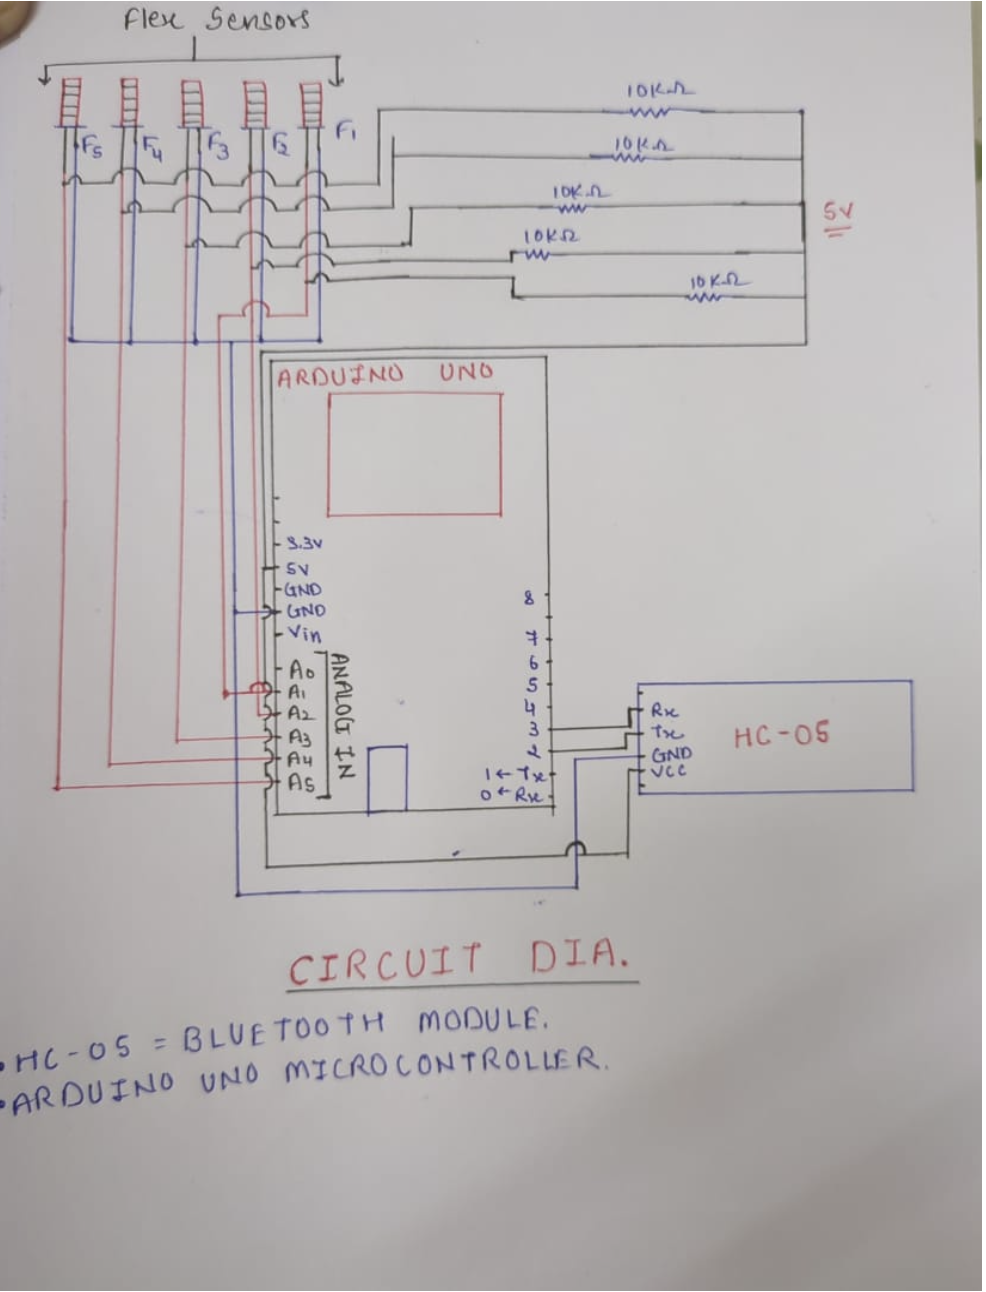 Flex Sensors
F5 F4 F3 F2 F1
10KΩ
10KΩ
10KΩ
10KΩ
10KΩ
5V
ARDUINO UNO
3.3V
5V
GND
GND
Vin
A0
A1
A2
A3
A4
A5
ANALOG IN
8
7
6
5
4
3
2
1 ← Tx
0 ← Rx
Rx
Tx
GND
VCC
HC-05
CIRCUIT DIA.
• HC-05 = BLUETOOTH MODULE.
• ARDUINO UNO MICROCONTROLLER.